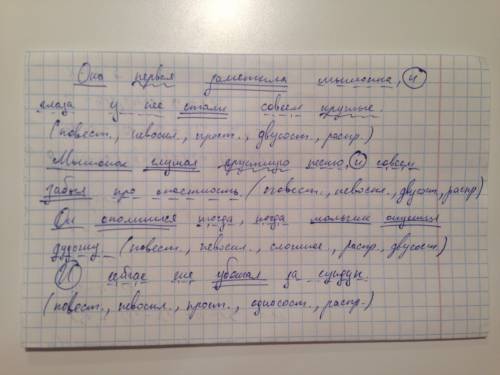 Она первая заметила мышонка, и
глаза у неё стали совсем круглые.
(повест., невоскл., прост., двусост., распр.)
Мышонок слушал грустную песню, и совсем
забыл про опасность. (повест., невоскл., двусост., распр)
Он спохватился тогда, когда мальчик опустил
дудочку. (повест., невоскл., сложное, распр., двусост.)
И сейчас же убежал за сундук.
(повест., невоскл., прост., односост., распр.)